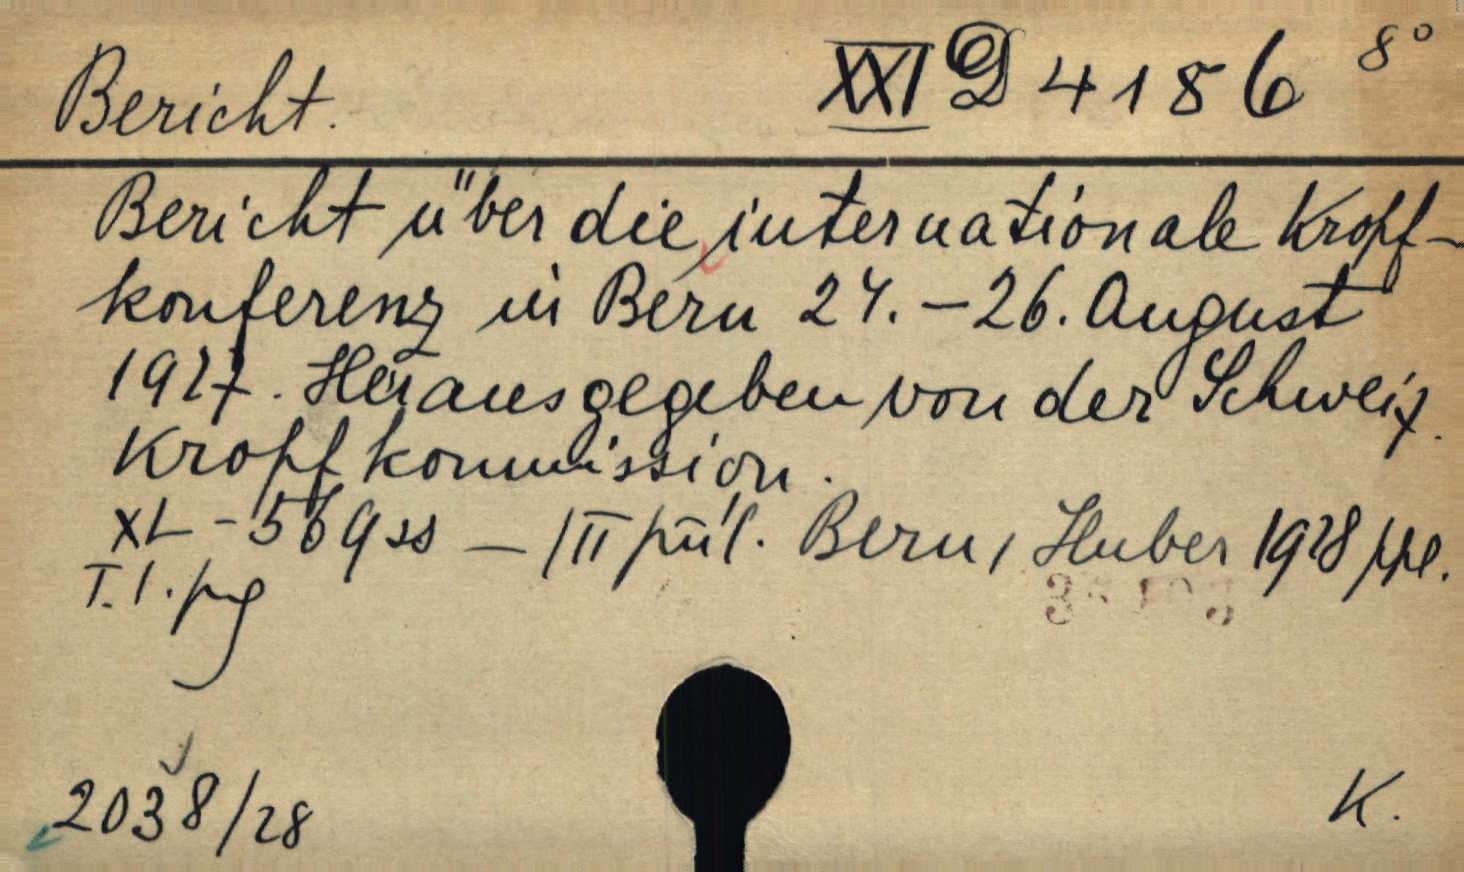 Bericht. XXI D 4186 8°
Bericht über die internationale Kropf-
konferenz in Bern 24.-26. August
1927. Herausgegeben von der Schweiz.
Kropfkommission.
XL - 569 ss — III příl. Bern, Huber 1928 ppl.
T. 1.
2038/28 K.